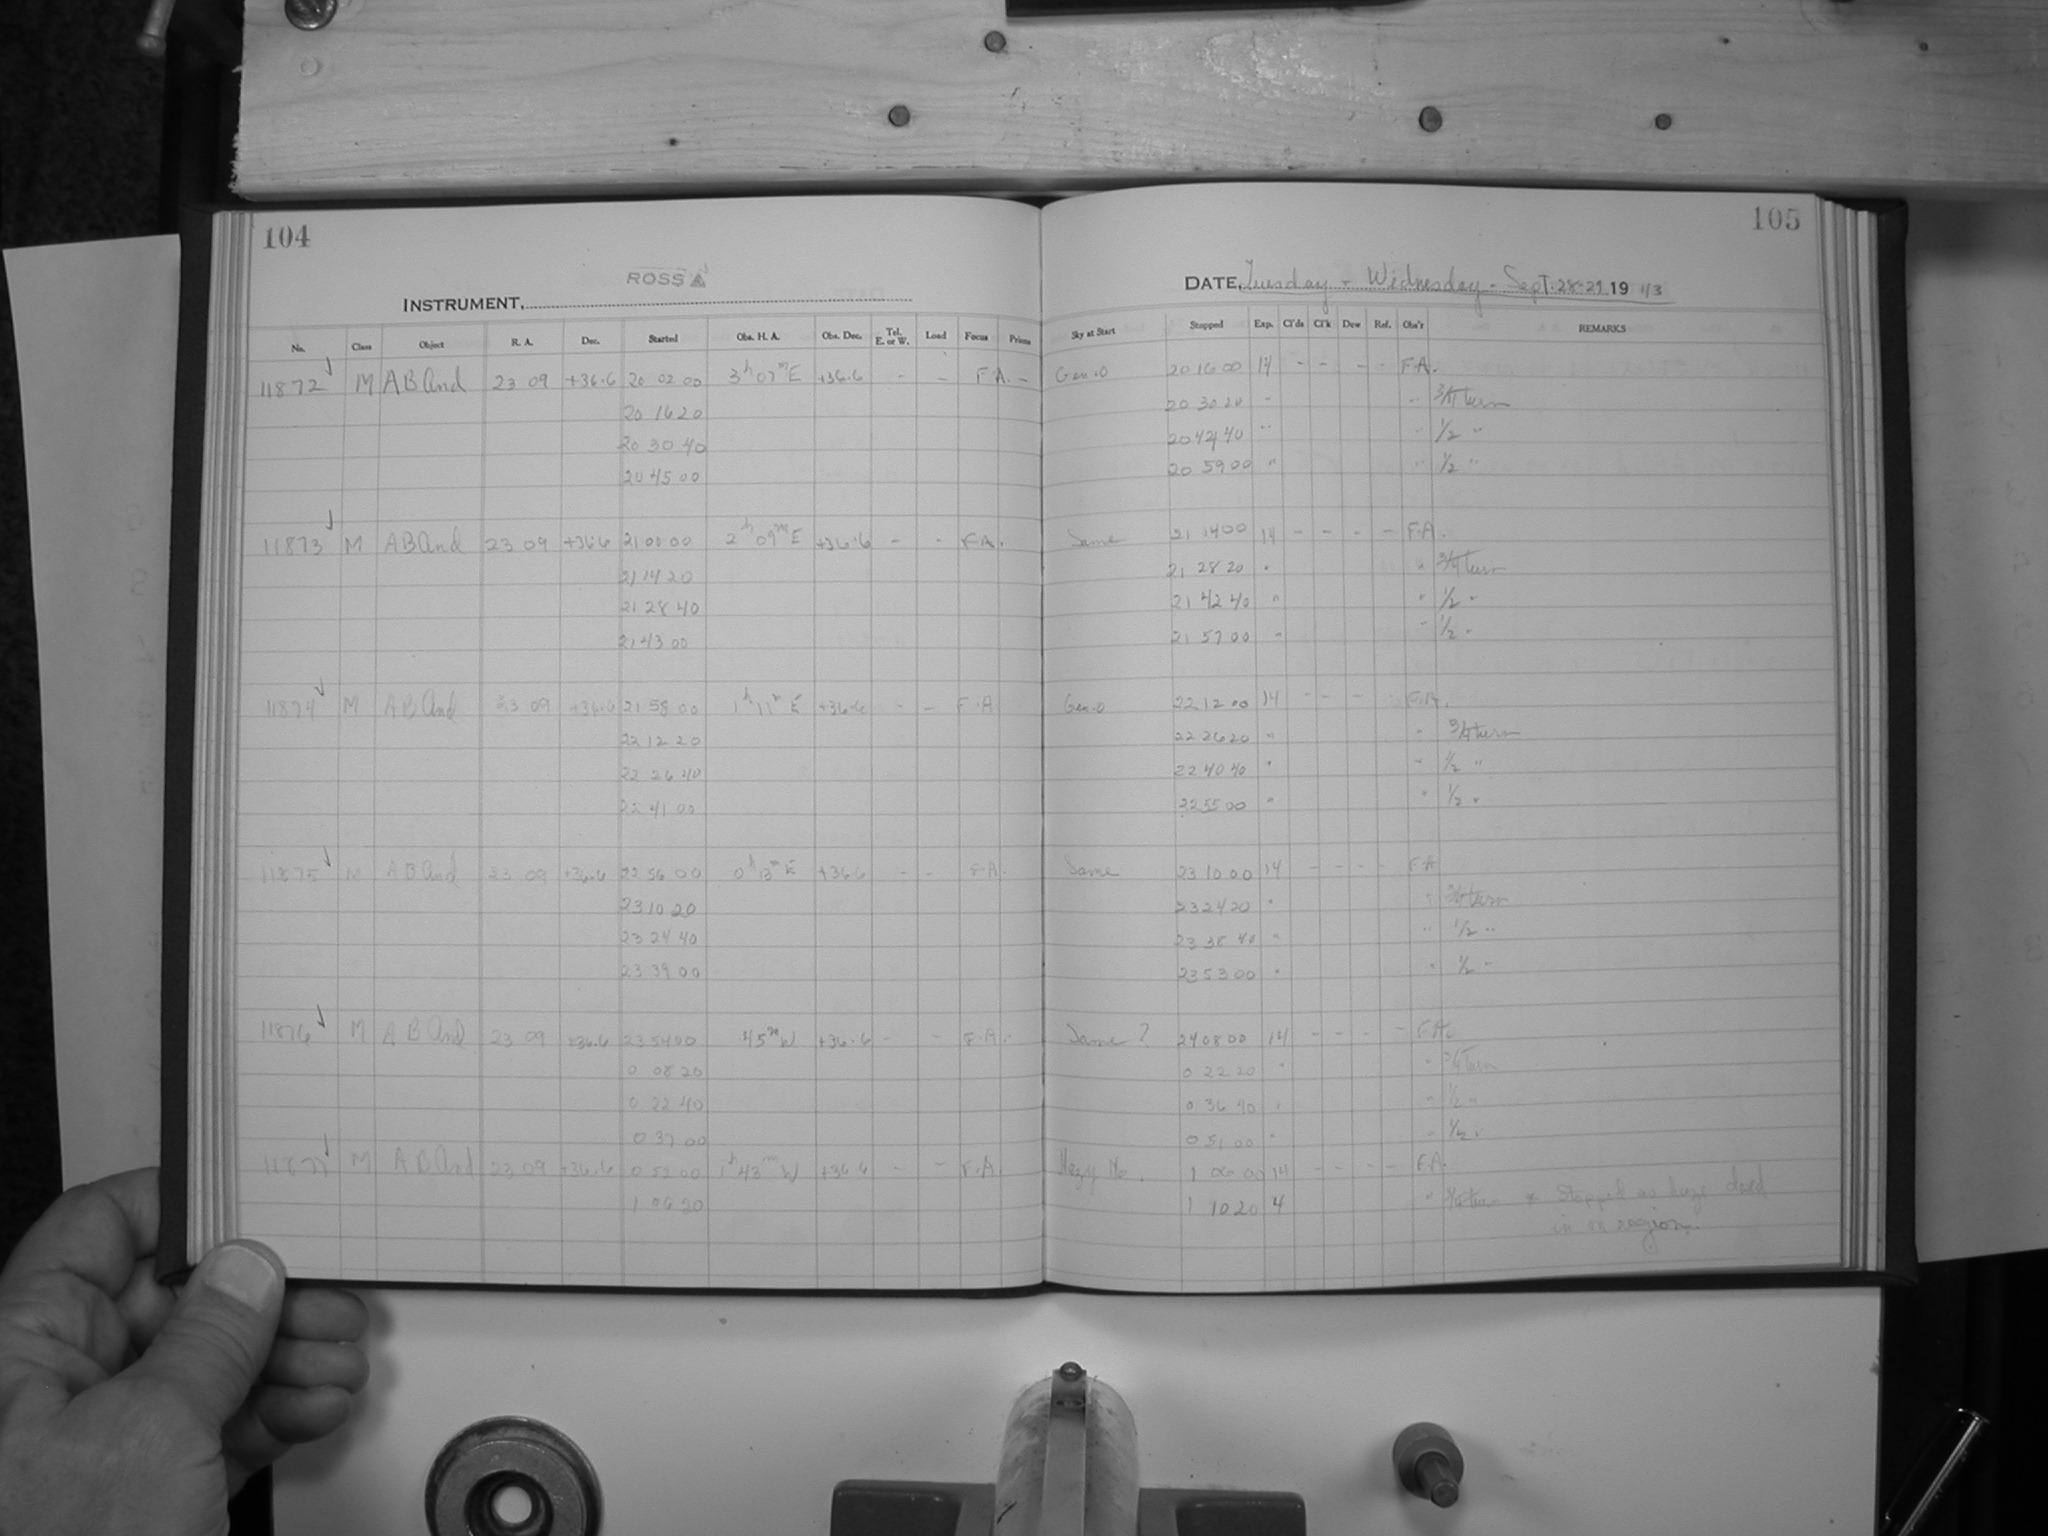 104
ROSS
INSTRUMENT,
No. Class Object R. A. Dec. Started Obs. H. A. Obs. Dec. Tel. E. or W. Load Focus Prisms
11872 M AB And 23 09 +36.6 20 02 00 3h 07m E +36.6 - - F.A. -
20 16 20
20 30 40
20 45 00
11873 M AB And 23 09 +36.6 21 00 00 2h 09m E +36.6 - - F.A.
21 14 20
21 28 40
21 43 00
11874 M AB And 23 09 +36.6 21 58 00 1h 11m E +36.6 - - F.A
22 12 20
22 26 40
22 41 00
11875 M AB And 23 09 +36.6 22 56 00 0h 13m E +36.6 - - F.A.
23 10 20
23 24 40
23 39 00
11876 M AB And 23 09 +36.6 23 54 00 45m W +36.6 - - F.A.
0 08 20
0 22 40
0 37 00
11877 M AB And 23 09 +36.6 0 52 00 1h 43m W +36.6 - - F.A
1 06 20
105
DATE, Tuesday - Wednesday - Sept. 28-29 19 43
Sky at Start Stopped Exp. Cl'ds Cl'k Dew Ref. Obs'r REMARKS
Gen.0 20 16 00 14 - - - - F.A.
20 30 20 " " 3/4 turn
20 44 40 " " 1/2 "
20 59 00 " " 1/2 "
Same 21 14 00 14 - - - - F.A.
21 28 20 " " 3/4 turn
21 42 40 " " 1/2 "
21 57 00 " " 1/2 "
Gen.0 22 12 00 14 - - - - F.A.
22 26 20 " " 3/4 turn
22 40 40 " " 1/2 "
22 55 00 " " 1/2 "
Same 23 10 00 14 - - - - F.A
23 24 20 " " 3/4 turn
23 38 40 " " 1/2 "
23 53 00 " " 1/2 "
Same ? 24 08 00 14 - - - - F.A.
0 22 20 " " 3/4 turn
0 36 40 " " 1/2 "
0 51 00 " " 1/2 "
Hazy 1 06 00 14 - - - - F.A.
1 10 20 4 " 3/4 turn * Stopped as haze
in on region.